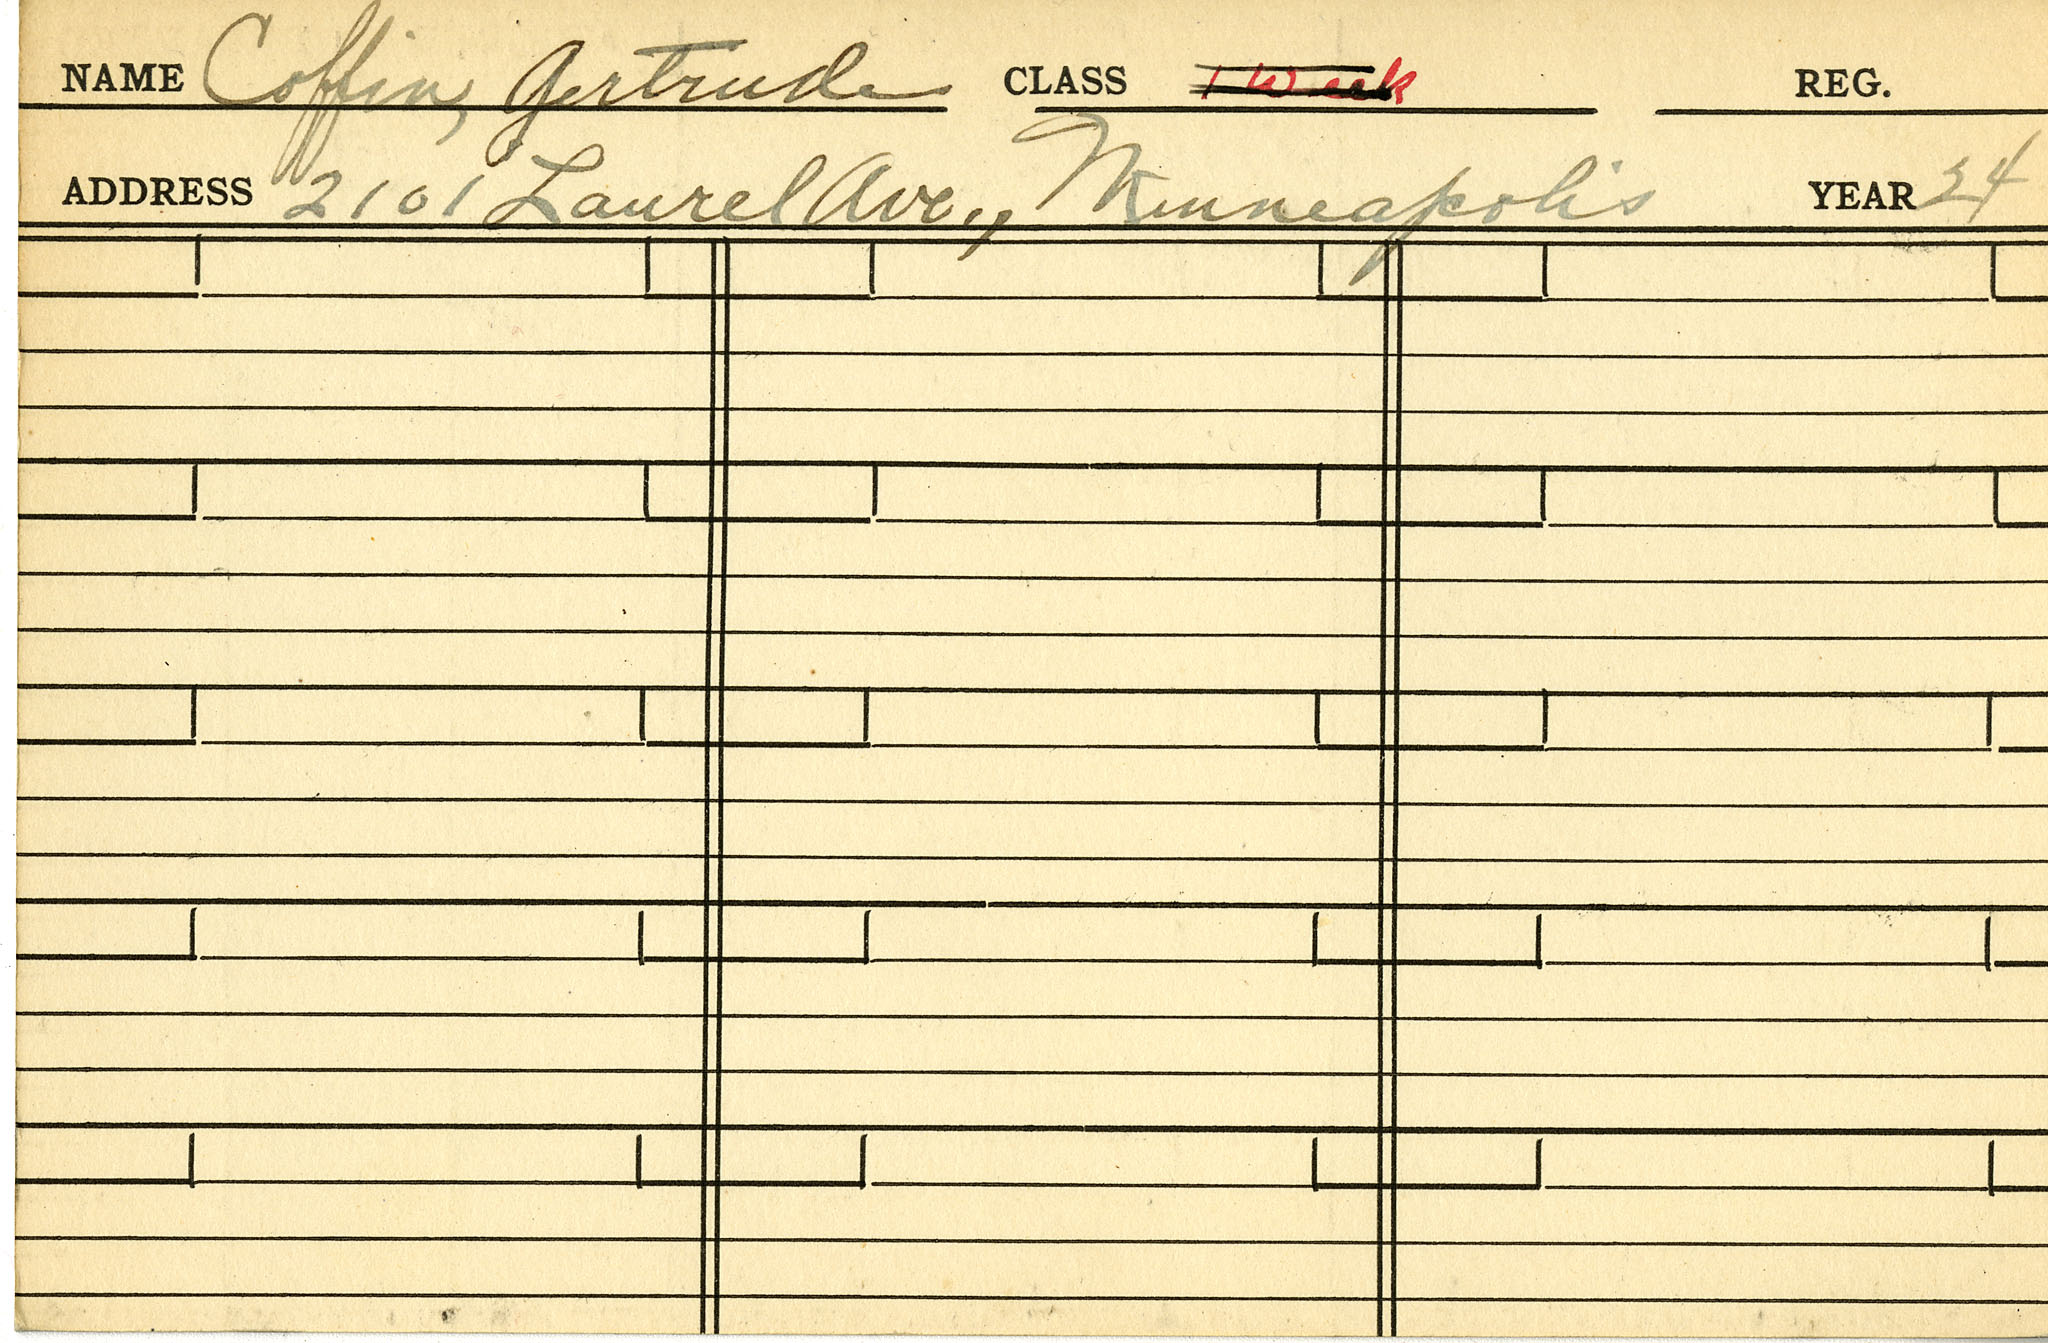 NAME Coffin, Gertrude CLASS 1 Week REG.
ADDRESS 2101 Laurel Ave., Minneapolis YEAR 24